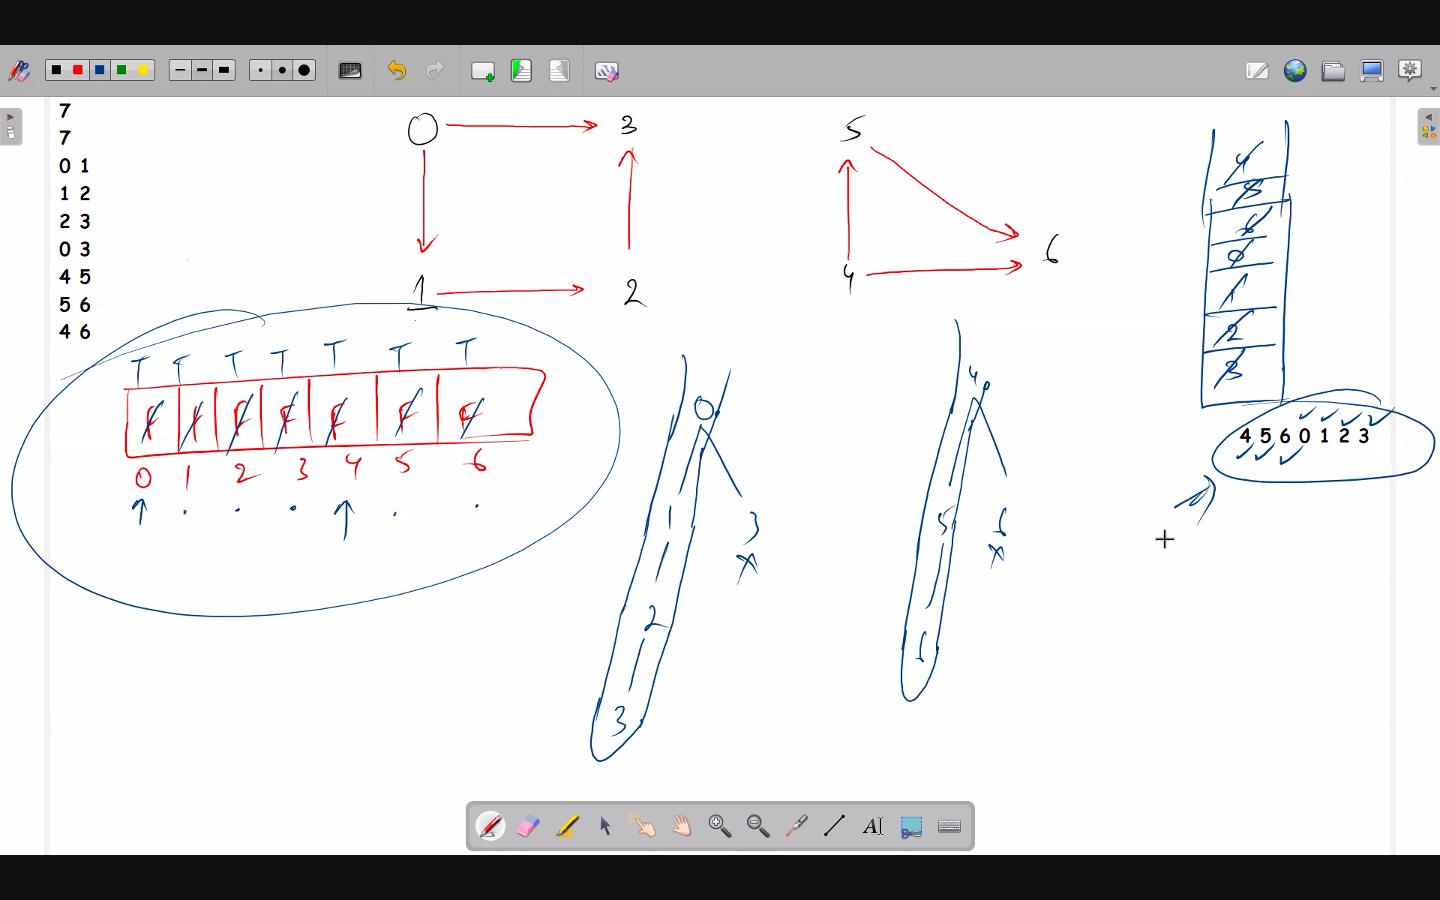 7
7
0 1
1 2
2 3
0 3
4 5
5 6
4 6
0 3
1 2
5
4 6
T T T T T T T
F F F F F F F
0 1 2 3 4 5 6
0
1 3
x
2
3
4
5 6
x
6
4
5
6
0
1
2
3
4 5 6 0 1 2 3
AI